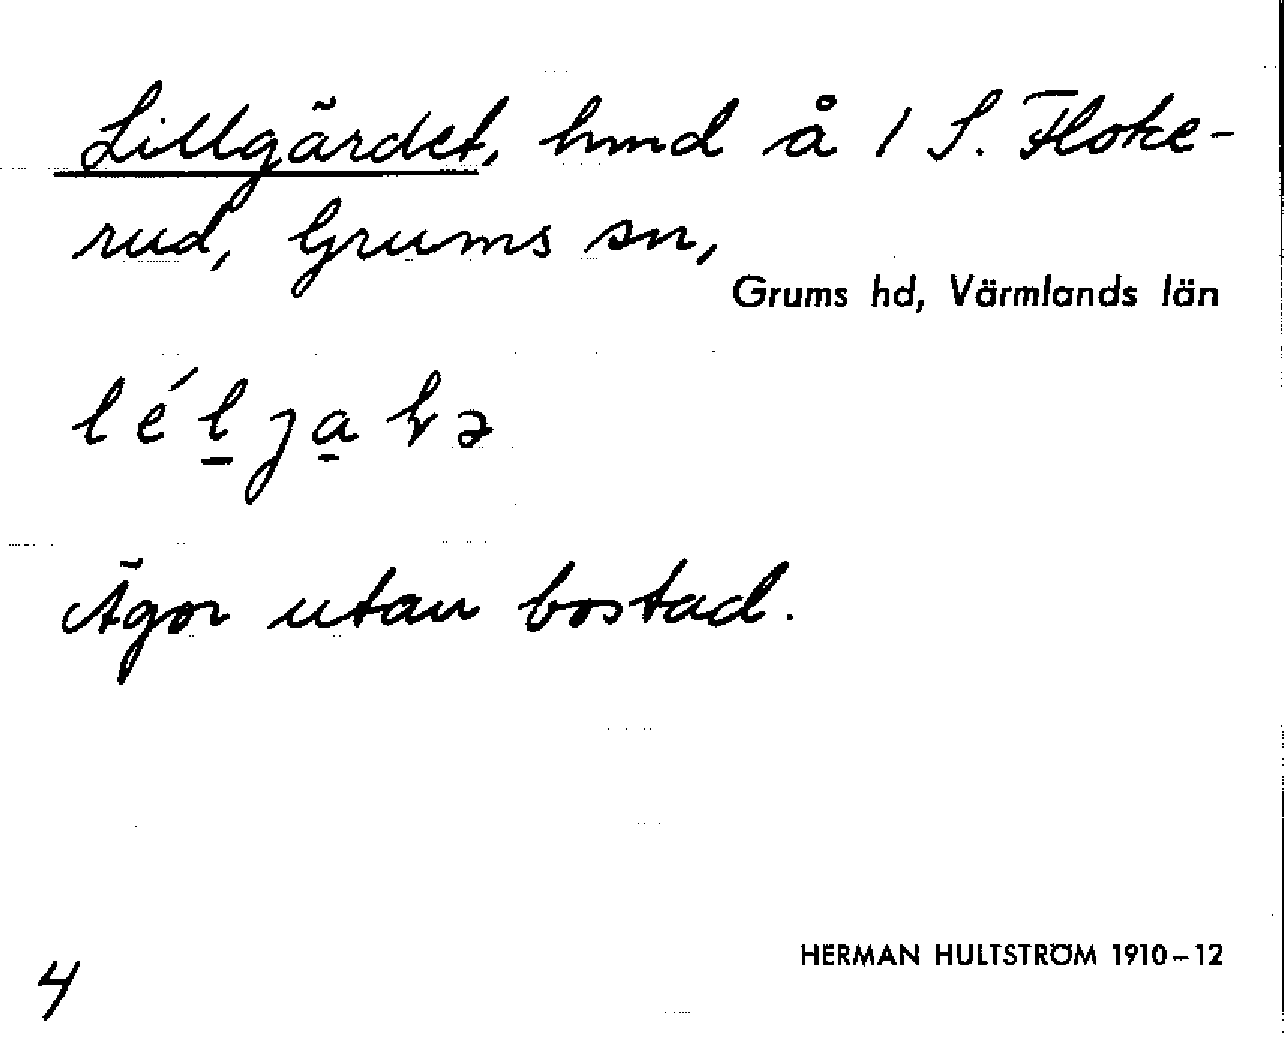 Lillgärdet, hmd å 1 S. Floke-
rud, Grums sn,
Grums hd, Värmlands län
Ägor utan bostad.
HERMAN HULTSTRÖM 1910-12
4